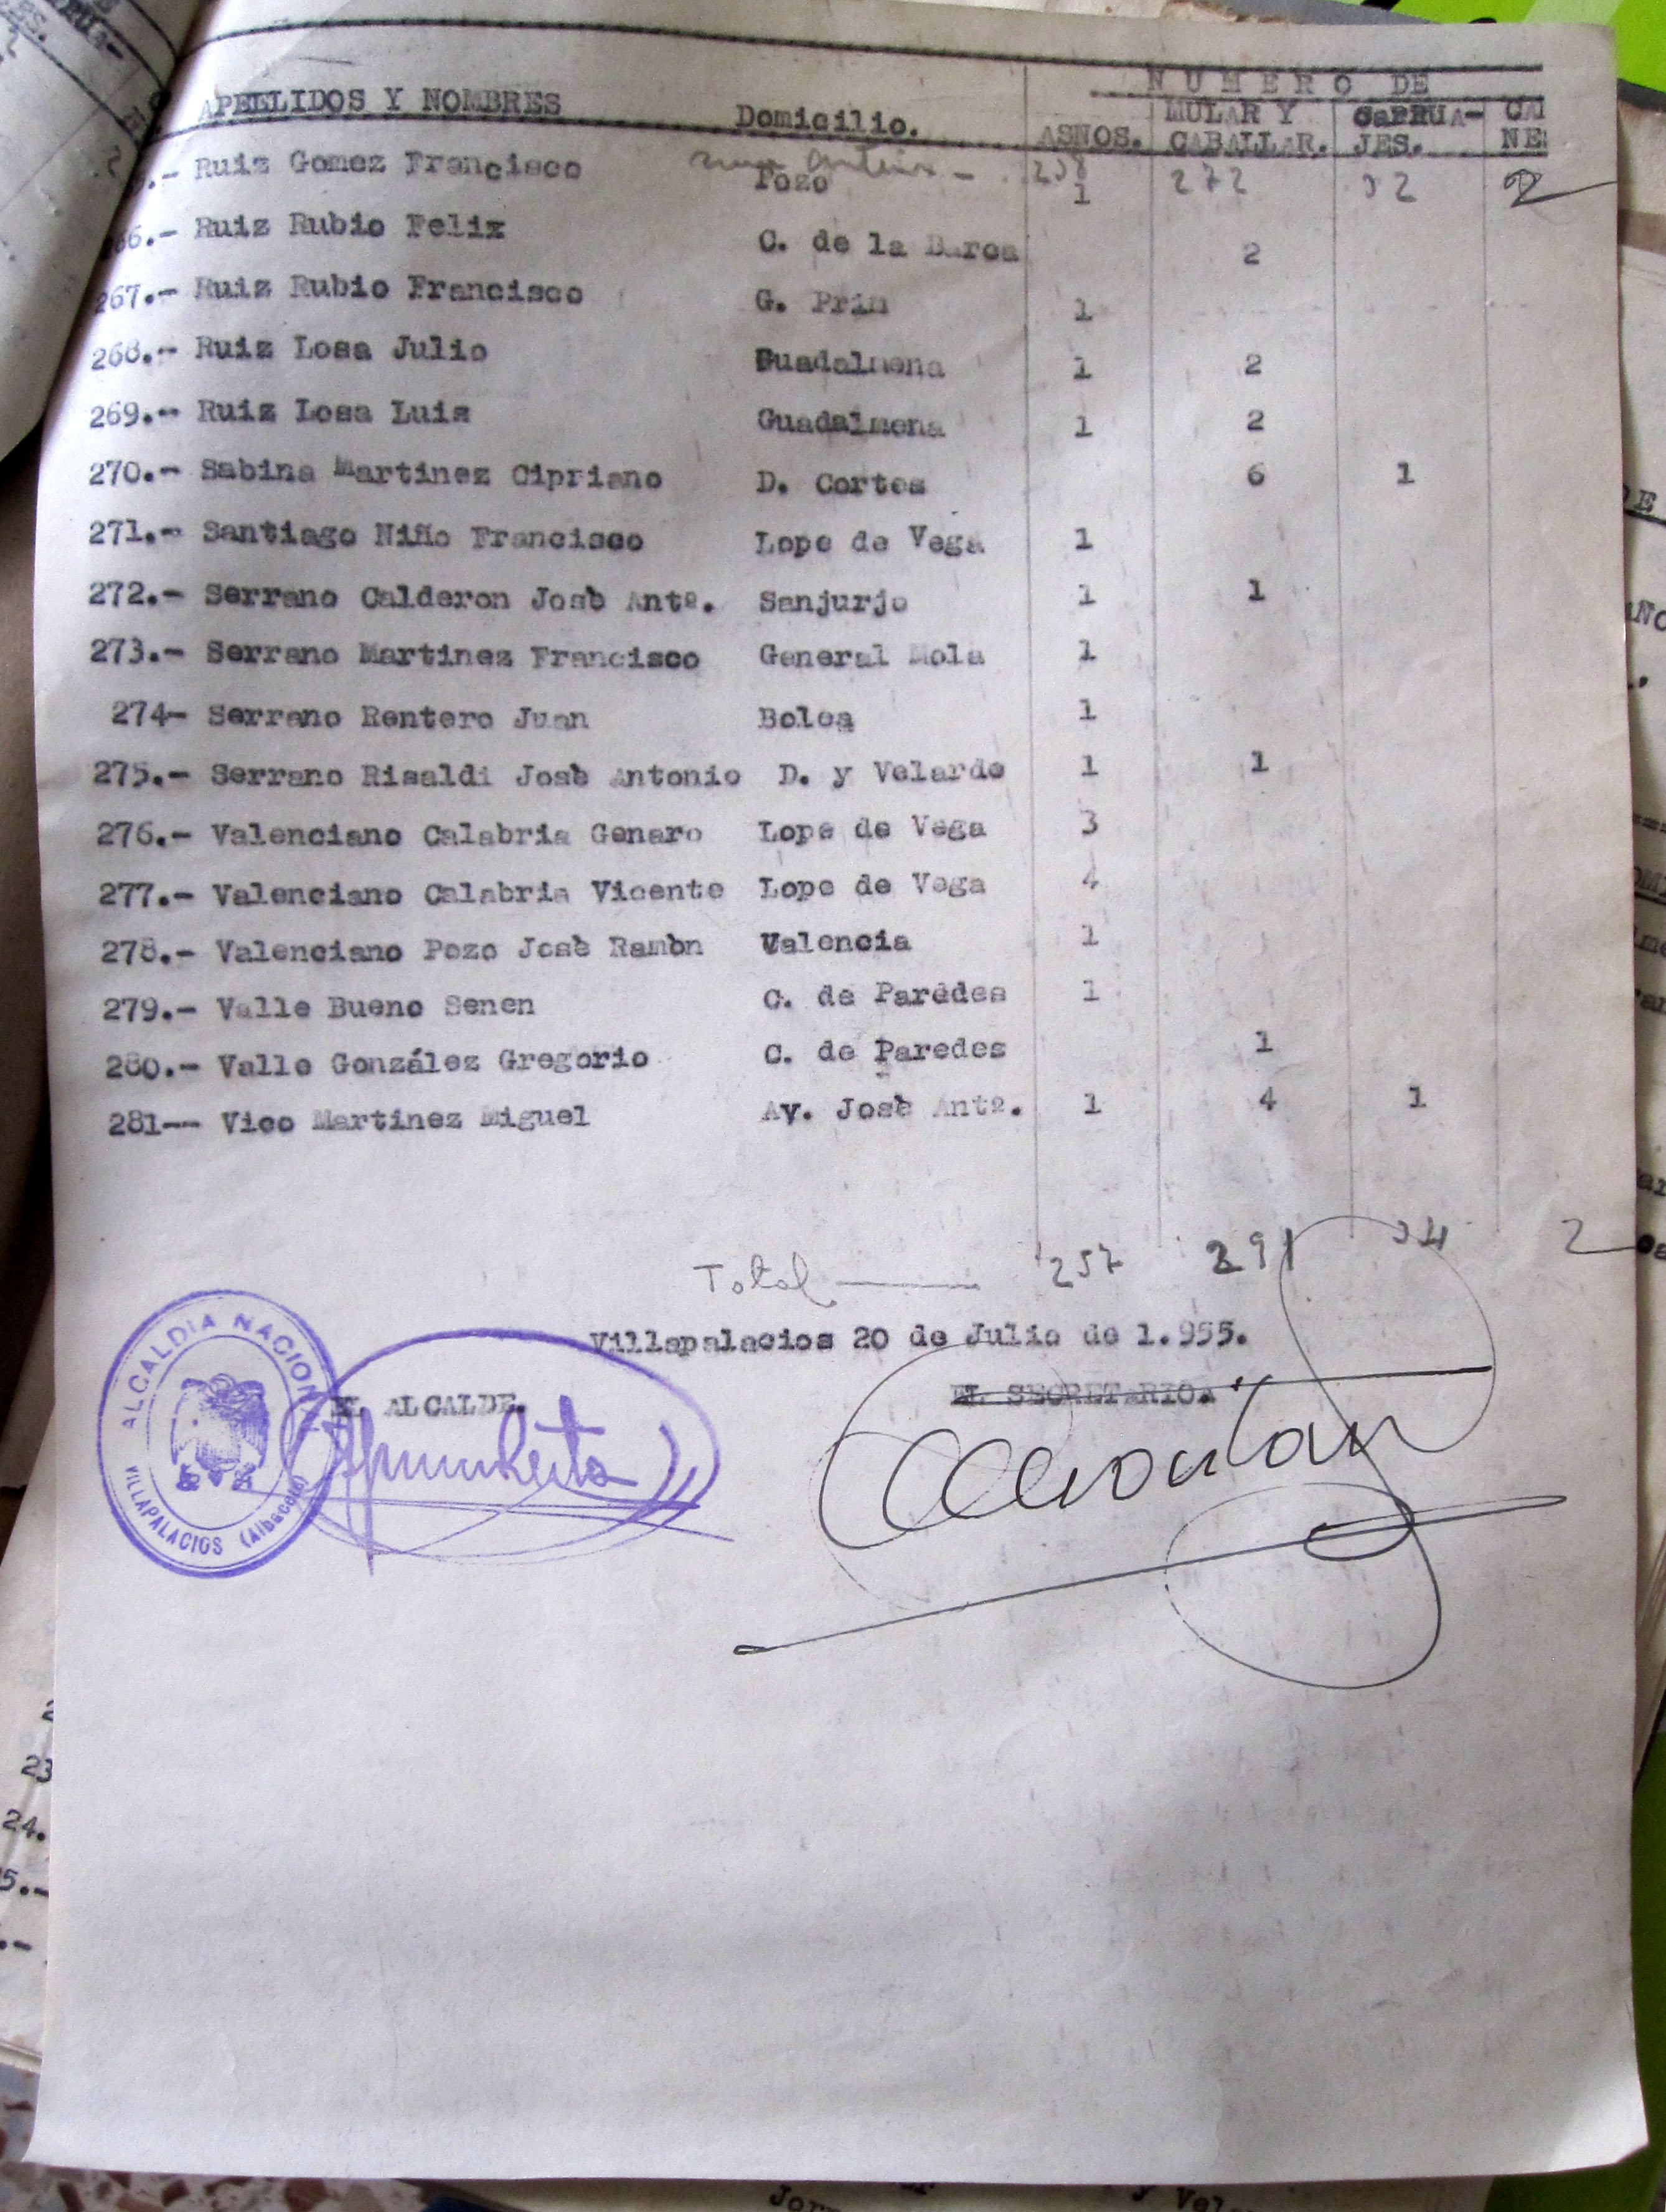 NUMERO DE
APEELIDOS Y NOMBRES Domicilio. ASNOS. MULAR Y CABALLAR. CARRUA-JES. CA NE
238 272 32 2
.- Ruiz Gomez Francisco Pozo 1
66.- Ruiz Rubio Felix C. de la Barca 2
267.- Ruiz Rubio Francisco G. Prim 1
268.- Ruiz Losa Julio Guadalmena 1 2
269.- Ruiz Losa Luis Guadalmena 1 2
270.- Sabina Martinez Cipriano D. Cortes 6 1
271.- Santiago Niño Francisco Lope de Vega 1
272.- Serrano Calderon Josè Antº. Sanjurjo 1 1
273.- Serrano Martinez Francisco General Mola 1
274- Serrano Rentero Juan Bolea 1
275.- Serrano Risaldi Josè Antonio D. y Velarde 1 1
276.- Valenciano Calabria Genaro Lope de Vega 3
277.- Valenciano Calabria Vicente Lope de Vega 4
278.- Valenciano Pozo Josè Ramòn Valencia 1
279.- Valle Bueno Senen C. de Parêdes 1
280.- Valle González Gregorio C. de Paredes 1
281-- Vico Martinez Miguel Av. Josè Antº. 1 4 1
Total 257 291 34 2
Villapalacios 20 de Julio de 1.955.
EL ALCALDE. EL SECRETARIO.
ALCALDIA NACIONAL
VILLAPALACIOS (Albacete)